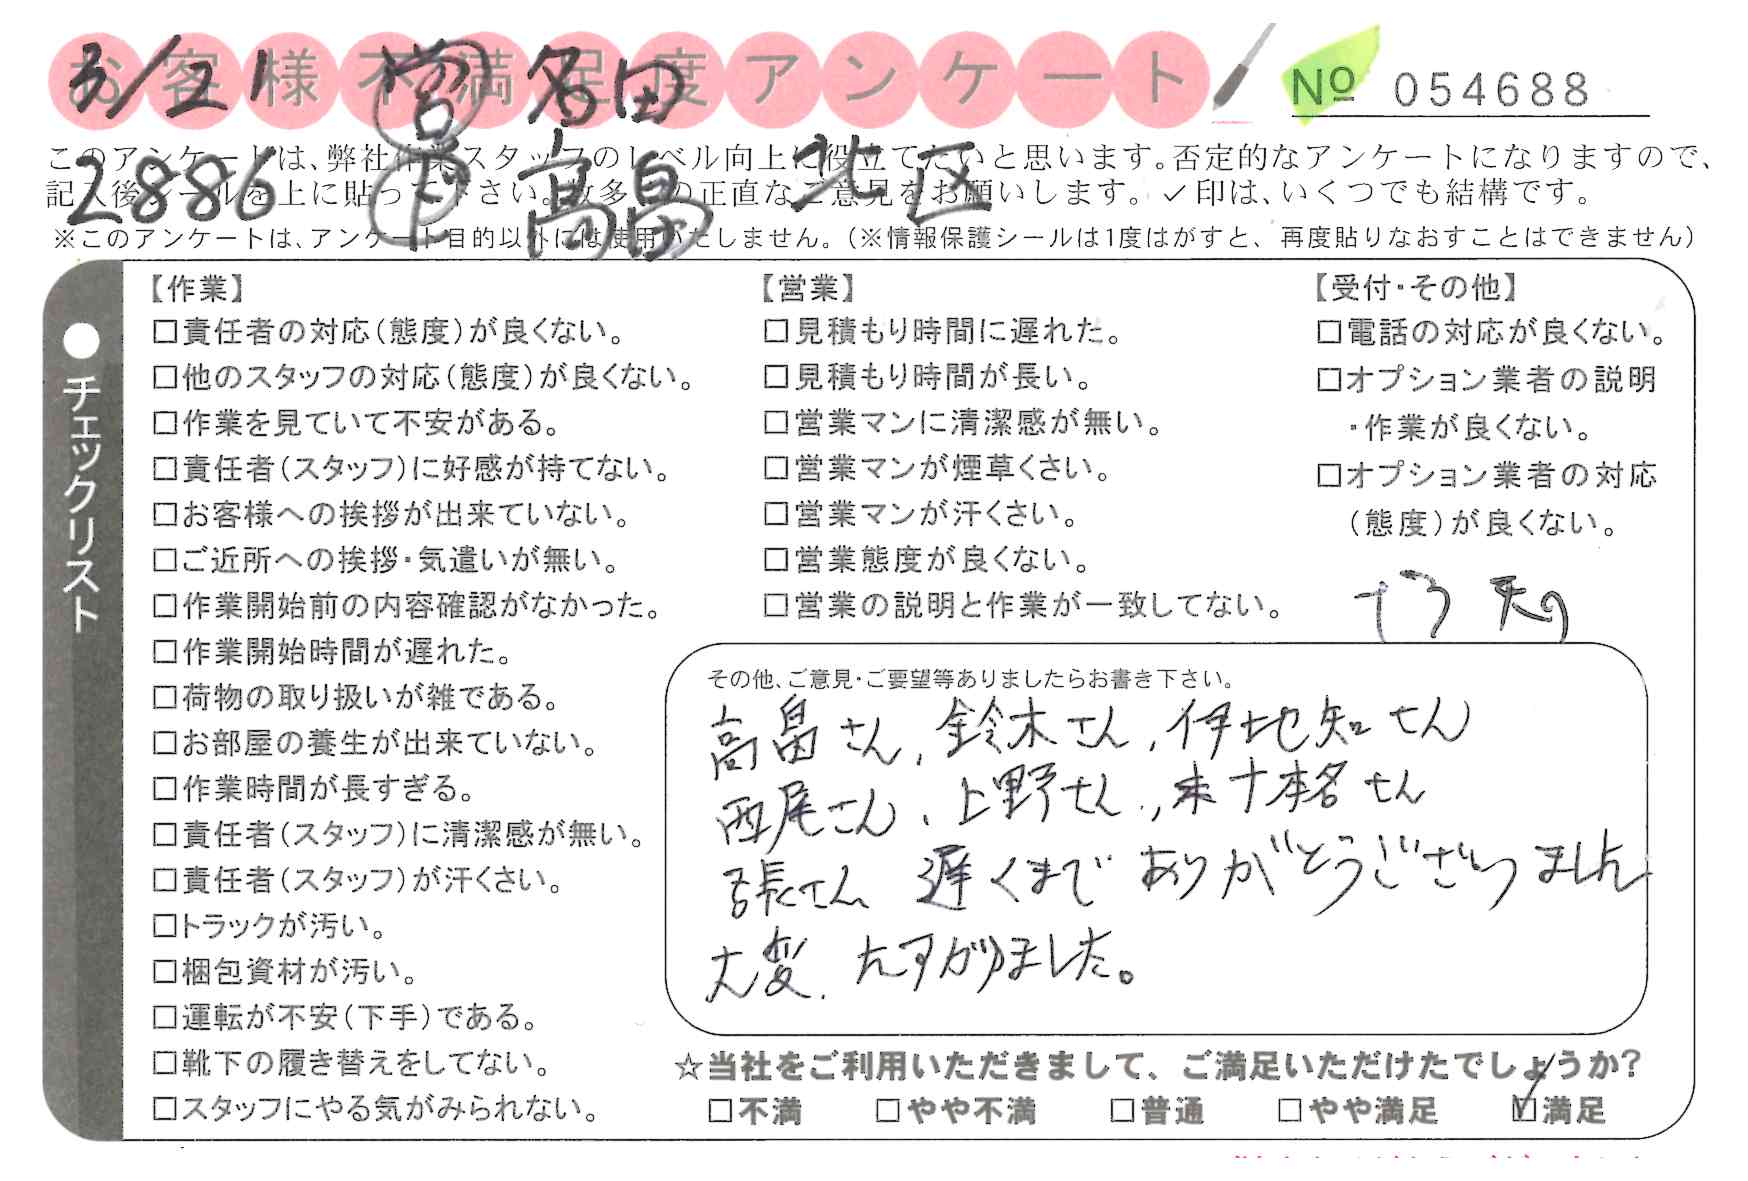 お客様不満足度アンケート
3/21 営 名田
No 054688
このアンケートは、弊社作業スタッフのレベル向上に役立てたいと思います。否定的なアンケートになりますので、
2886 高畠 北区
記入後シールを上に貼って下さい。数多くの正直なご意見をお願いします。✓印は、いくつでも結構です。
※このアンケートは、アンケート目的以外には使用いたしません。(※情報保護シールは1度はがすと、再度貼りなおすことはできません)
●チェックリスト
【作業】
□責任者の対応(態度)が良くない。
□他のスタッフの対応(態度)が良くない。
□作業を見ていて不安がある。
□責任者(スタッフ)に好感が持てない。
□お客様への挨拶が出来ていない。
□ご近所への挨拶・気遣いが無い。
□作業開始前の内容確認がなかった。
□作業開始時間が遅れた。
□荷物の取り扱いが雑である。
□お部屋の養生が出来ていない。
□作業時間が長すぎる。
□責任者(スタッフ)に清潔感が無い。
□責任者(スタッフ)が汗くさい。
□トラックが汚い。
□梱包資材が汚い。
□運転が不安(下手)である。
□靴下の履き替えをしてない。
□スタッフにやる気がみられない。
【営業】
□見積もり時間に遅れた。
□見積もり時間が長い。
□営業マンに清潔感が無い。
□営業マンが煙草くさい。
□営業マンが汗くさい。
□営業態度が良くない。
□営業の説明と作業が一致してない。
【受付・その他】
□電話の対応が良くない。
□オプション業者の説明
・作業が良くない。
□オプション業者の対応
(態度)が良くない。
その他、ご意見・ご要望等ありましたらお書き下さい。
高畠さん、鈴木さん、伊地知さん
西尾さん、上野さん、来十本名さん
張さん 遅くまで ありがとうございました
大変、たすかりました。
☆当社をご利用いただきまして、ご満足いただけたでしょうか?
□不満 □やや不満 □普通 □やや満足 ☑満足